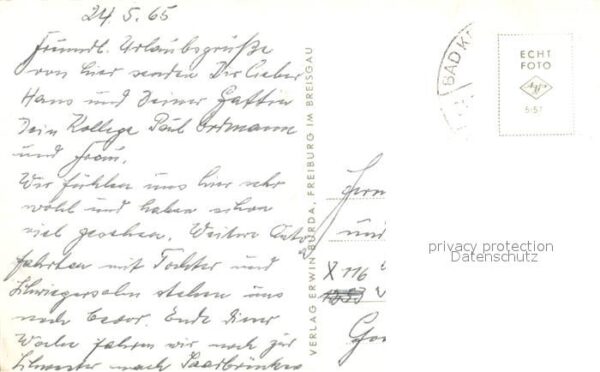 24.5.65
Freundl. Urlaubsgrüße
von hier senden Dir lieber
Hans und Deiner Gattin
Dein Kollege Paul Erdmann
und Frau.
Wir fühlen uns hier sehr
wohl und haben schon
viel gesehen. Weitere Auto
fahrten mit Tochter und
Schwiegersohn stehen uns
noch bevor. Ende dieser
Woche fahren wir noch zur
Schwester nach Saarbrücken
VERLAG ERWIN BURDA, FREIBURG IM BREISGAU
BAD K
ECHT
FOTO
Agfa
5·51
und
X 116
privacy protection
Datenschutz